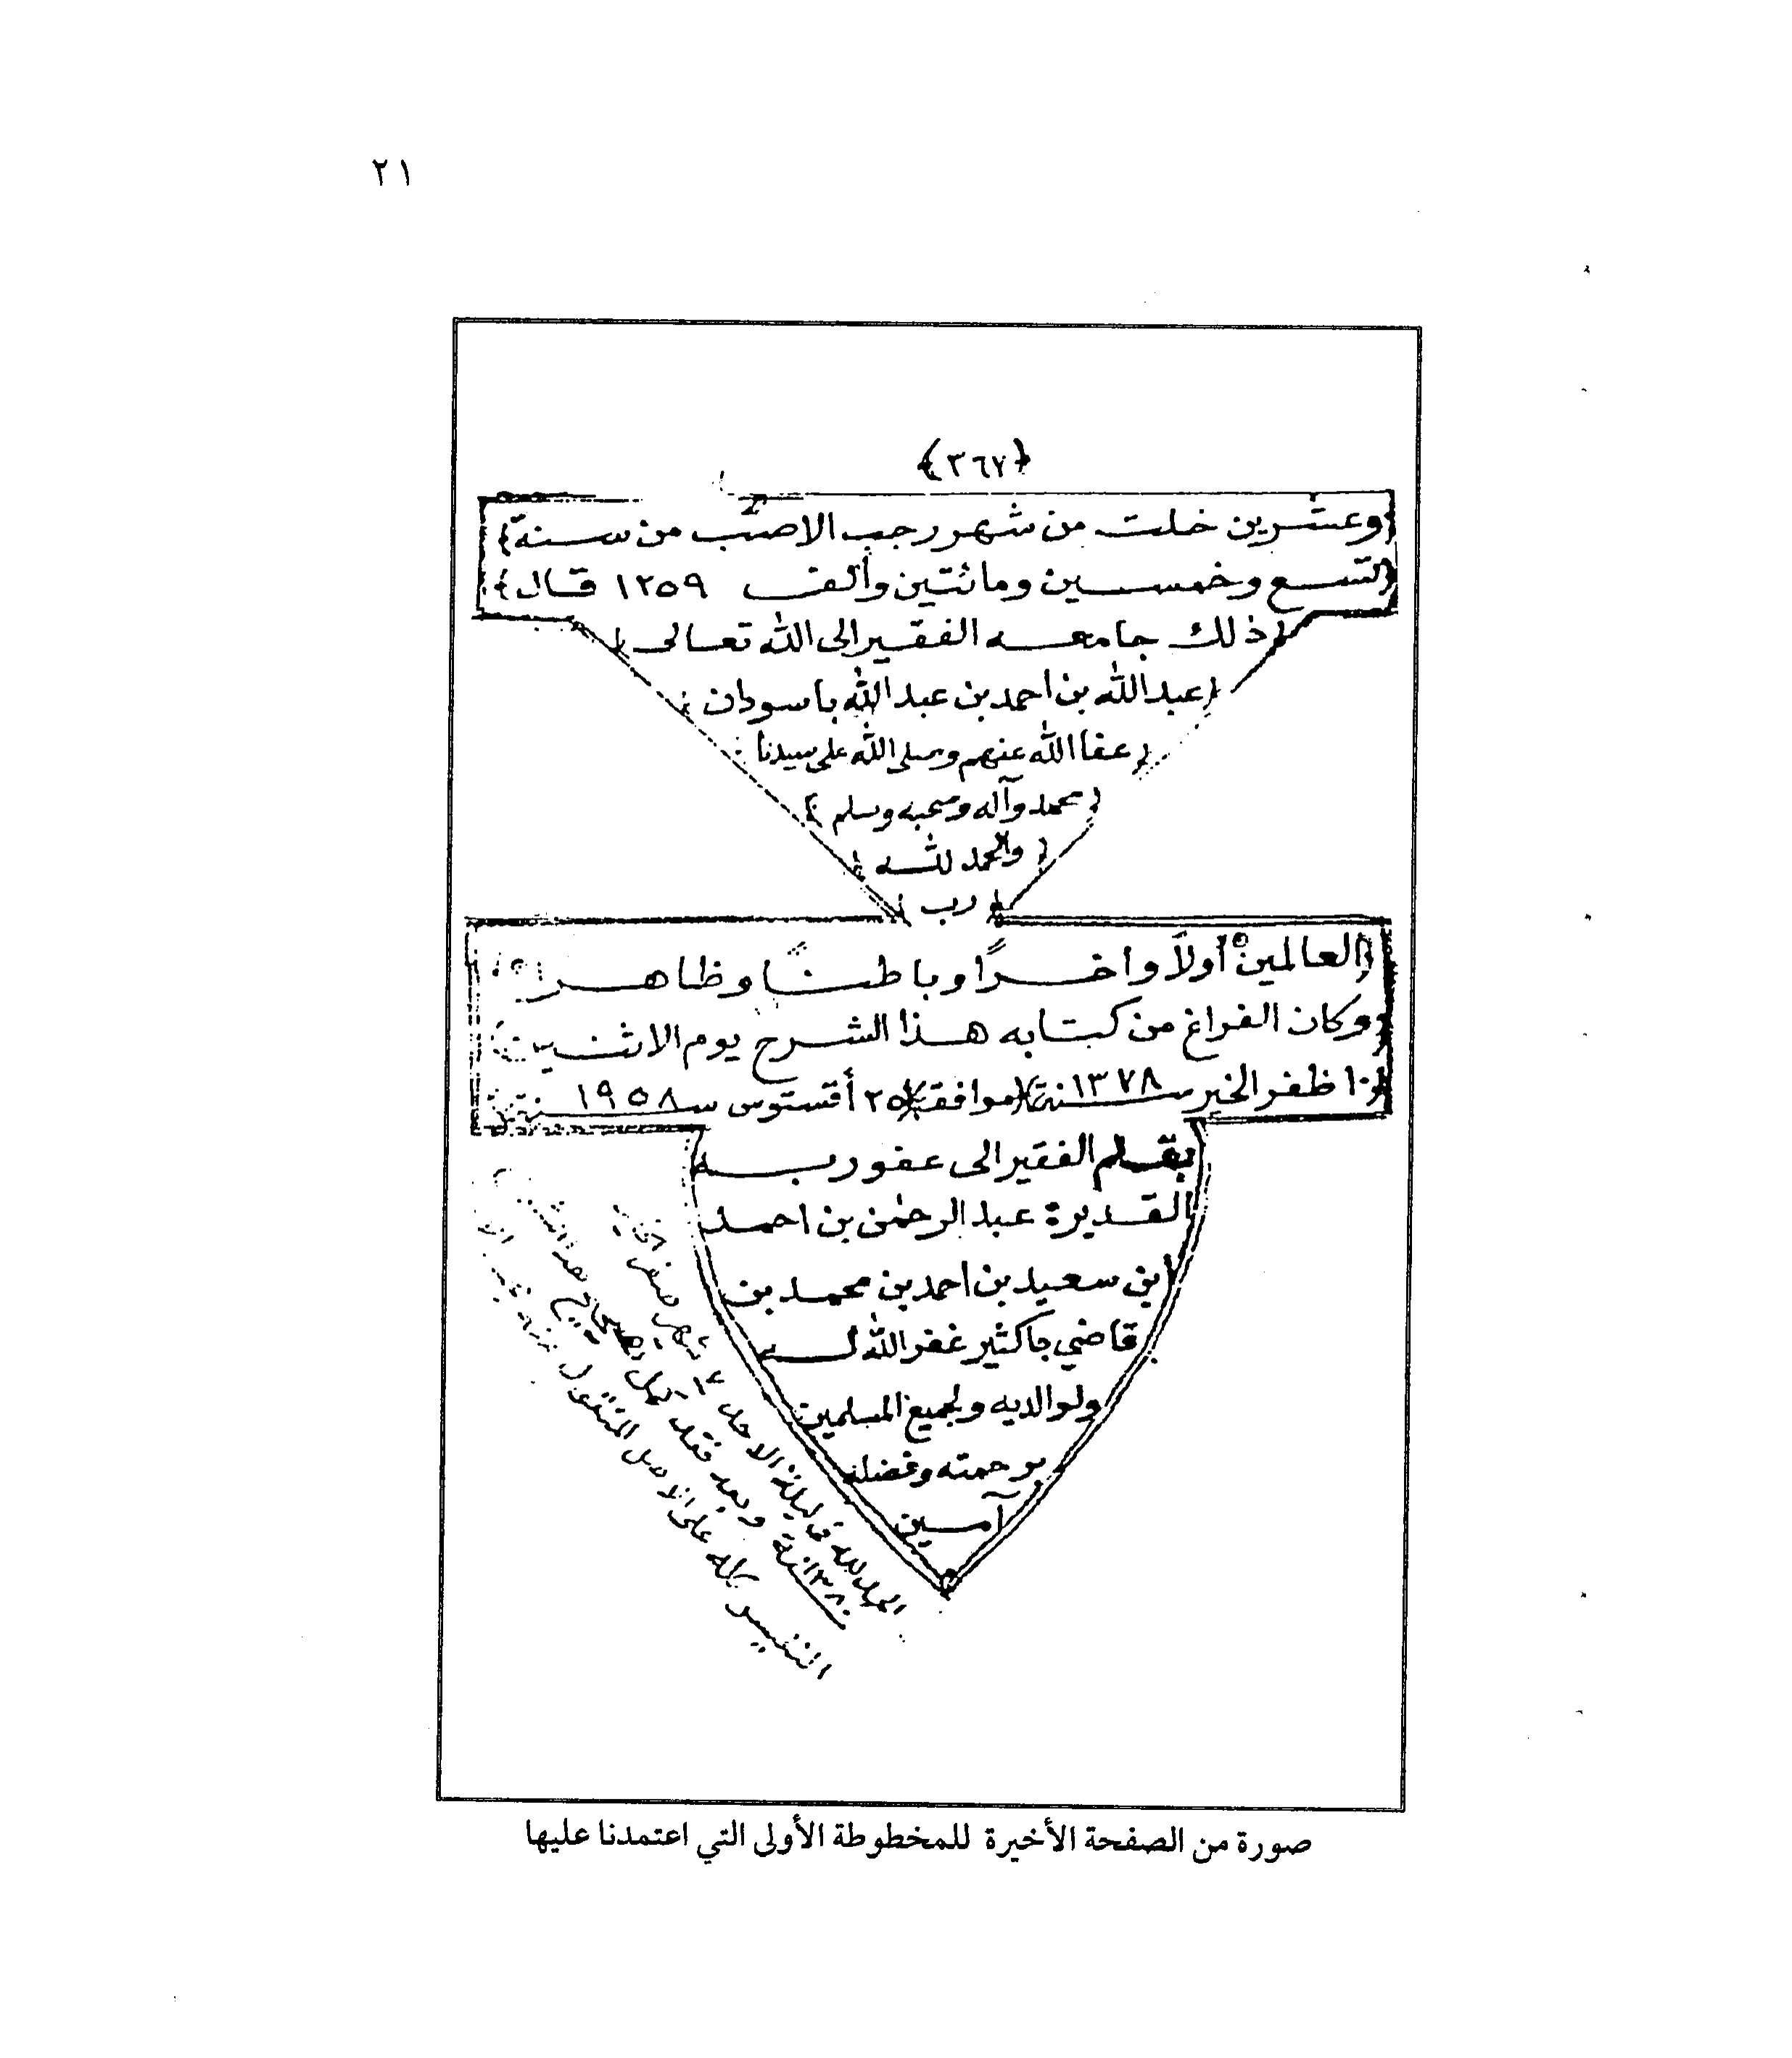 ٢١
﴿٣٦٧﴾
وعشرين خلت من شهر رجب الاصب من سنة
تسع وخمسين ومائتين وألف ١٢٥٩ قال
ذلك جامعه الفقير الى الله تعالى
عبد الله بن احمد بن عبد الله باسودان
عفا الله عنهم وصلى الله على سيدنا
محمد وآله وصحبه وسلم
والحمد لله
رب
العالمين أولاً واخراً وباطناً وظاهرا
وكان الفراغ من كتابه هذا الشرح يوم الاثنين
١٠ ظفر الخير سنة ١٣٧٨ موافق ٢٥ أقستوس سنة ١٩٥٨
بقلم الفقير الى عفو ربه
القدير عبد الرحمٰن بن احمد
ابن سعيد بن احمد بن محمد بن
قاضي باكثير غفر الله له
ولوالديه ولجميع المسلمين
برحمته وفضله
آمين
الحمد لله في ليلة الاحد شهر صفر
١٣٨٠ سنة وبعد فقد
كله على الاصل المنقول
صورة من الصفحة الأخيرة للمخطوطة الأولى التي اعتمدنا عليها